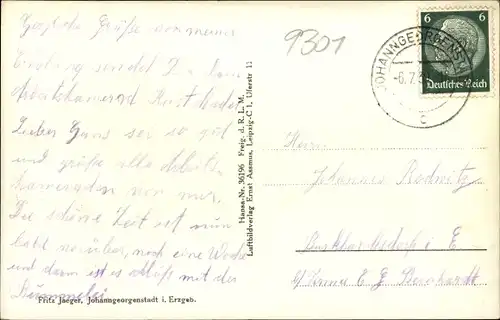 Herzliche Grüße von meinem
sendet Dir dein
Arbeitskamerad Kurt
Lieber Hans sei so gut
und grüße alle Arbeits
kameraden von mir.
Die schöne Zeit ist nun
bald vorüber, noch eine Woche
und dann ist es Schluß mit der
Fritz Jaeger, Johanngeorgenstadt i. Erzgeb.
9301
Hansa-Nr. 36196 Freig. d. R. L. M.
Luftbildverlag Ernst Assmus, Leipzig-C 1, Uferstr 11
JOHANNGEORGENST
-6.7.
c
6 6
Deutsches Reich
Herrn
Johannes
i. E
b/ Firma E G